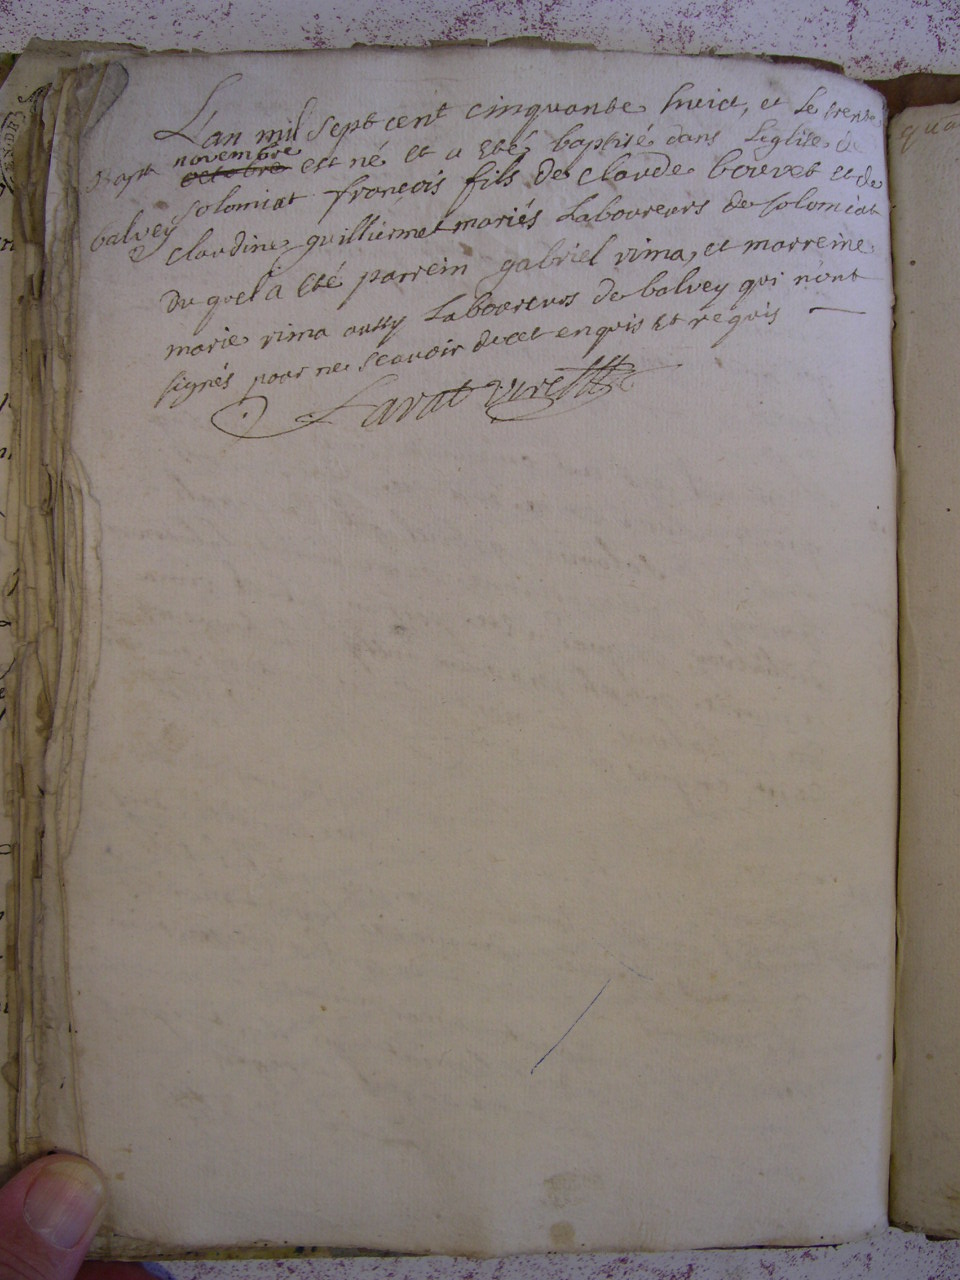 L'an mil sept cent cinquante huict, et le trente
novembre
Bapt. octobre est né et a eté baptisé dans Leglise de
balvey solomiat françois fils de claude bouvet et de
claudine guilliermet mariés Laboureurs de solomiat
Du quel a eté parrein gabriel rima, et marreine
marie rima aussy Laboureurs de balvey qui n'ont
signés pour ne scavoir de cet enquis et requis
Lavat vic
qua